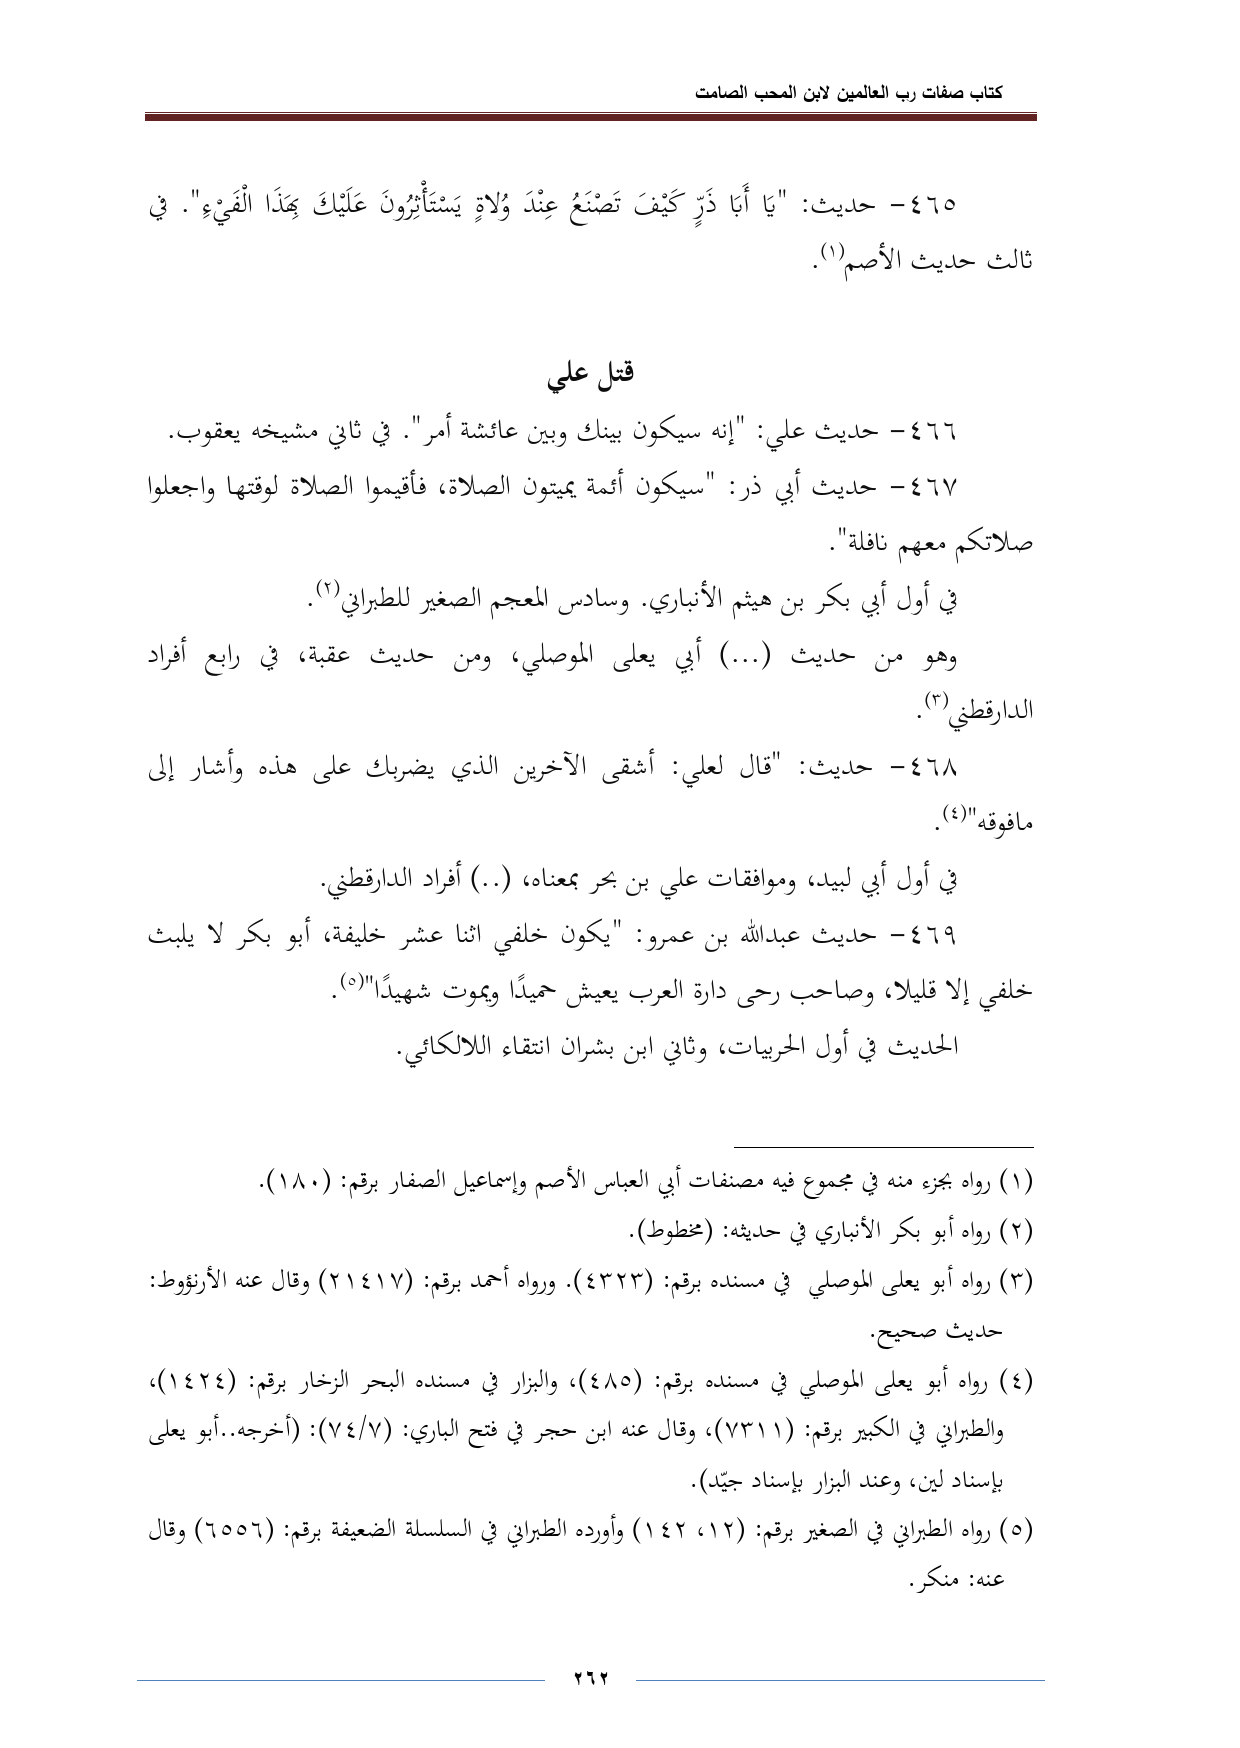 كتاب صفات رب العالمين لابن المحب الصامت
٤٦٥- حديث: "يَا أَبَا ذَرٍّ كَيْفَ تَصْنَعُ عِنْدَ وُلاةٍ يَسْتَأْثِرُونَ عَلَيْكَ بِهَذَا الْفَيْءِ". في
ثالث حديث الأصم(١).
قتل علي
٤٦٦- حديث علي: "إنه سيكون بينك وبين عائشة أمر". في ثاني مشيخه يعقوب.
٤٦٧- حديث أبي ذر: "سيكون أئمة يميتون الصلاة، فأقيموا الصلاة لوقتها واجعلوا
صلاتكم معهم نافلة".
في أول أبي بكر بن هيثم الأنباري. وسادس المعجم الصغير للطبراني(٢).
وهو من حديث (...) أبي يعلى الموصلي، ومن حديث عقبة، في رابع أفراد
الدارقطني(٣).
٤٦٨- حديث: "قال لعلي: أشقى الآخرين الذي يضربك على هذه وأشار إلى
مافوقه"(٤).
في أول أبي لبيد، وموافقات علي بن بحر بمعناه، (..) أفراد الدارقطني.
٤٦٩- حديث عبدالله بن عمرو: "يكون خلفي اثنا عشر خليفة، أبو بكر لا يلبث
خلفي إلا قليلا، وصاحب رحى دارة العرب يعيش حميدًا ويموت شهيدًا"(٥).
الحديث في أول الحربيات، وثاني ابن بشران انتقاء اللالكائي.
(١) رواه بجزء منه في مجموع فيه مصنفات أبي العباس الأصم وإسماعيل الصفار برقم: (١٨٠).
(٢) رواه أبو بكر الأنباري في حديثه: (مخطوط).
(٣) رواه أبو يعلى الموصلي في مسنده برقم: (٤٣٢٣). ورواه أحمد برقم: (٢١٤١٧) وقال عنه الأرنؤوط:
حديث صحيح.
(٤) رواه أبو يعلى الموصلي في مسنده برقم: (٤٨٥)، والبزار في مسنده البحر الزخار برقم: (١٤٢٤)،
والطبراني في الكبير برقم: (٧٣١١)، وقال عنه ابن حجر في فتح الباري: (٧٤/٧): (أخرجه..أبو يعلى
بإسناد لين، وعند البزار بإسناد جيّد).
(٥) رواه الطبراني في الصغير برقم: (١٢، ١٤٢) وأورده الطبراني في السلسلة الضعيفة برقم: (٦٥٥٦) وقال
عنه: منكر.
٢٦٢